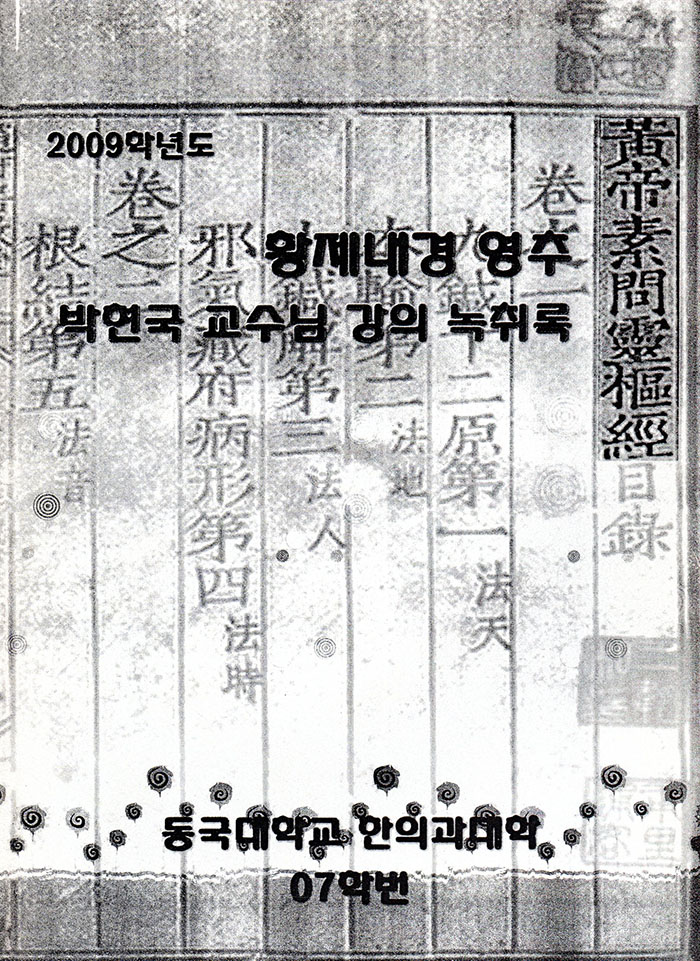 2009학년도
황제내경 영추
박현국 교수님 강의 녹취록
동국대학교 한의과대학
07학번
黃帝素問靈樞經目錄
卷之一
九鍼十二原第一法天
本輸第二法地
小鍼解第三法人
邪氣藏府病形第四法時
卷之二
根結第五法音